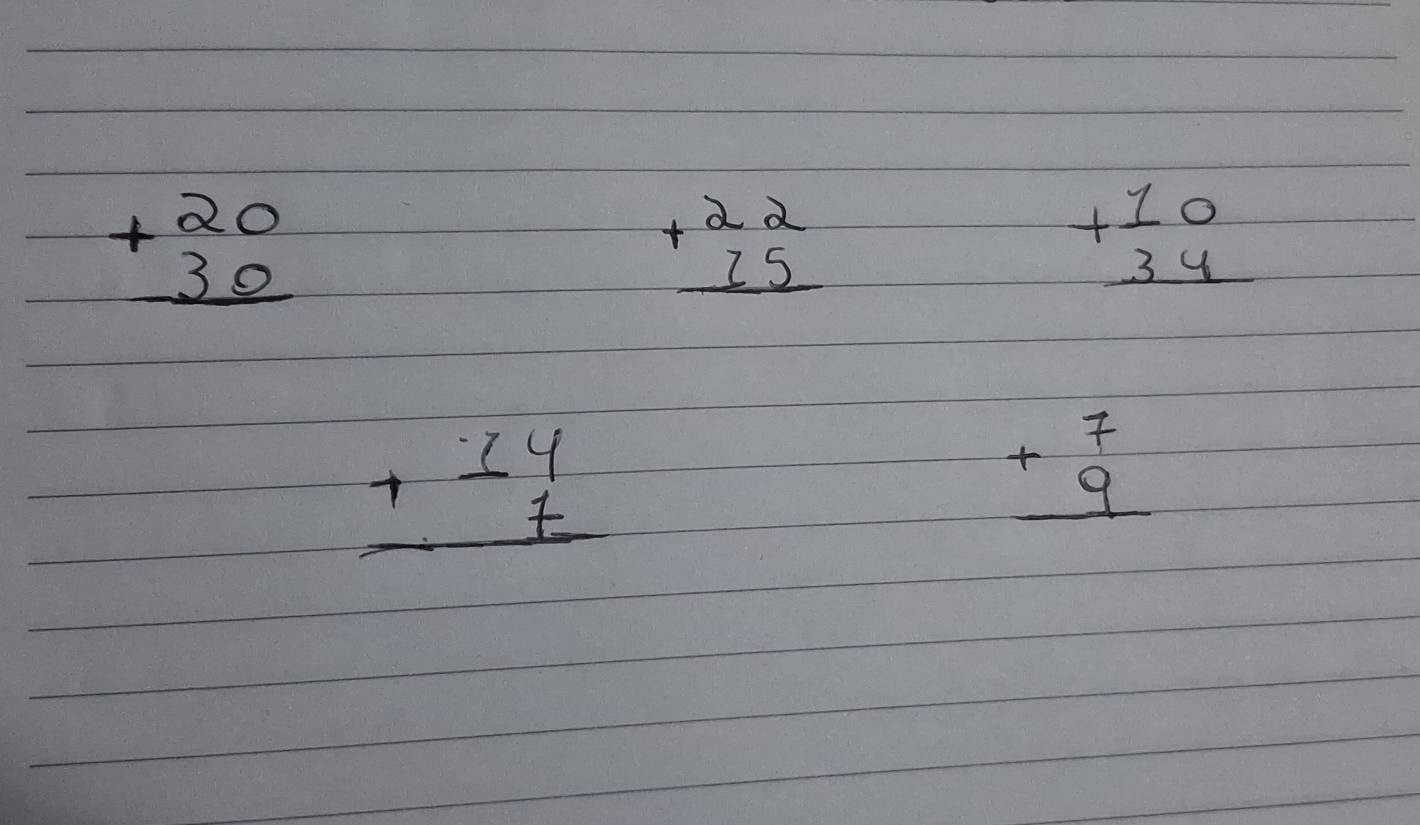 + 20
30
+ 22
15
+ 10
34
+ 14
7
+ 7
9